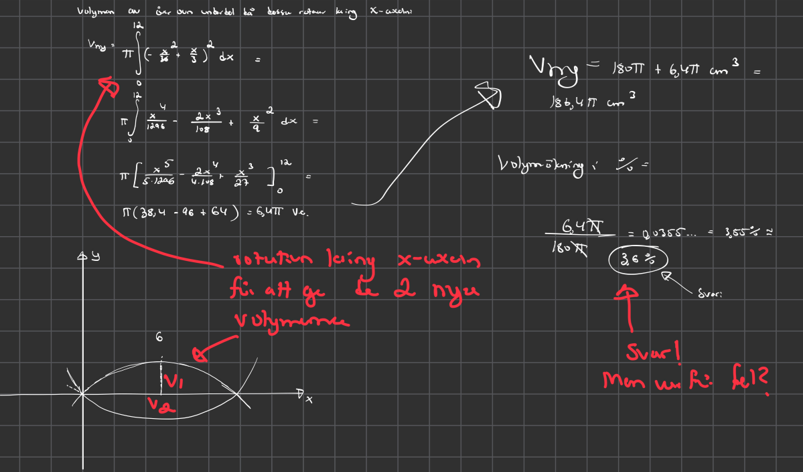 Volymen av över oun underdel på bossu roterar kring x-axeln
Vny = π ∫₀¹² (-x²/36 + x/3)² dx =
π ∫₀¹² x⁴/1296 - 2x³/108 + x²/9 dx =
π [x⁵/5·1296 - 2x⁴/4·108 + x³/27]₀¹² =
π(38,4 - 96 + 64) = 6,4π v.e.
Vny = 180π + 6,4π cm³ =
186,4π cm³
Volymökning i % =
6,4π/180π = 0,0355... = 3,55% ≈
3,6%
Svar:
rotation kring x-axeln
för att ge de 2 nya
volymerna
Svar!
Men varför fel?
y
6
V1
V2
x